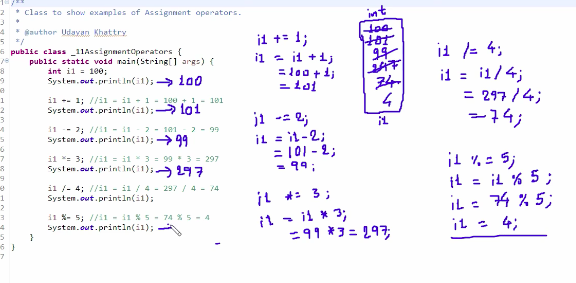 /**
* Class to show examples of Assignment operators.
*
* @author Udayan Khattry
public class _11AssignmentOperators {
public static void main(String[] args) {
int i1 = 100;
System.out.println(i1); → 100
i1 += 1; //i1 = i1 + 1 = 100 + 1 = 101
System.out.println(i1); → 101
i1 -= 2; //i1 = i1 - 2 = 101 - 2 = 99
System.out.println(i1); → 99
i1 *= 3; //i1 = i1 * 3 = 99 * 3 = 297
System.out.println(i1); → 297
i1 /= 4; //i1 = i1 / 4 = 297 / 4 = 74
System.out.println(i1);
i1 %= 5; //i1 = i1 % 5 = 74 % 5 = 4
System.out.println(i1);
}
}
i1 += 1;
i1 = i1 + 1;
= 100 + 1;
= 101
i1 -= 2;
i1 = i1 - 2;
= 101 - 2;
= 99;
i1 *= 3;
i1 = i1 * 3;
= 99 * 3 = 297;
int
100
101
99
297
74
4
i1
i1 /= 4;
i1 = i1/4;
= 297/4;
= 74;
i1 %= 5;
i1 = i1 % 5;
i1 = 74 % 5;
i1 = 4;